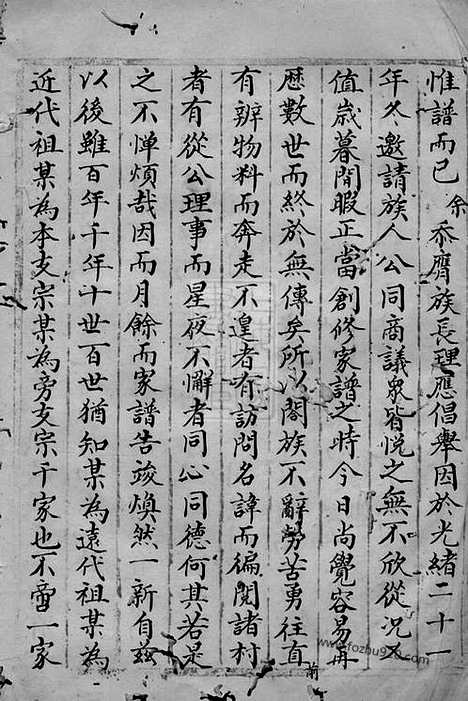 惟譜而已余忝膺族長理應倡舉因於光緒二十一
年冬邀請族人公同商議衆皆悅之無不欣從況又
值歲暮閒暇正當創修家譜之時今日尚覺容易再
歷數世而終於無傳矣所以闔族不辭勞苦勇往直前
有辦物料而奔走不遑者有訪問名諱而徧閱諸村
者有從公理事而星夜不懈者同心同德何其若是
之不憚煩哉因而月餘而家譜告竣煥然一新自茲
以後雖百年千年十世百世猶知某為遠代祖某為
近代祖某為本支宗某為旁支宗千家也不啻一家
www.fozhu920.com